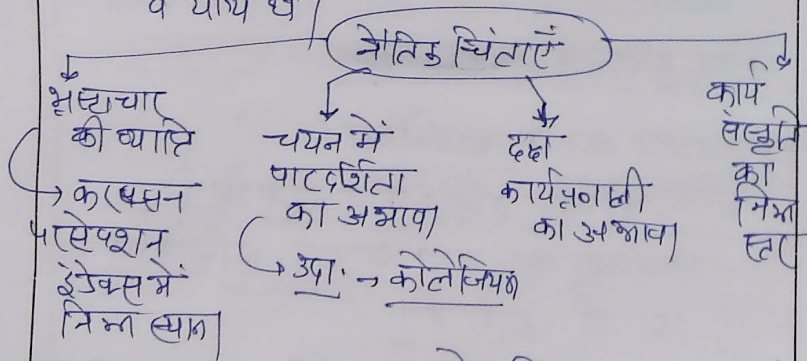 व योग्य थे
नैतिक चिंताएँ
भ्रष्टाचार
की व्याप्ति
→ करप्सन
परसेप्शन
इंडेक्स में
निम्न स्थान
चयन में
पारदर्शिता
का अभाव
→ उदा. → कोलेजियम
दक्ष
कार्यप्रणाली
का अभाव
कार्य
संस्कृति
का
निम्न
स्तर